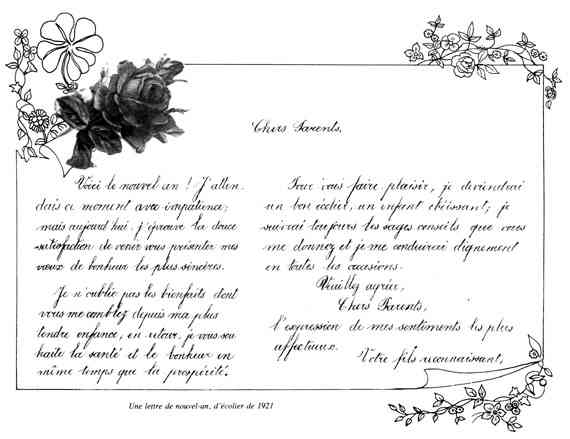 Chers Parents,
Voici le nouvel an ! J'atten-
dais ce moment avec impatience;
mais aujourd'hui, j'éprouve la douce
satisfaction de venir vous présenter mes
vœux de bonheur les plus sincères.
Je n'oublie pas les bienfaits dont
vous me comblez depuis ma plus
tendre enfance, en retour, je vous sou-
haite la santé et le bonheur en
même temps que la prospérité.
Pour vous faire plaisir, je deviendrai
un bon écolier, un enfant obéissant; je
suivrai toujours les sages conseils que vous
me donnez et je me conduirai dignement
en toutes les occasions.
Veuillez agréer,
Chers Parents,
l'expression de mes sentiments les plus
affectueux.
Votre fils reconnaissant,
Une lettre de nouvel-an, d'écolier de 1921